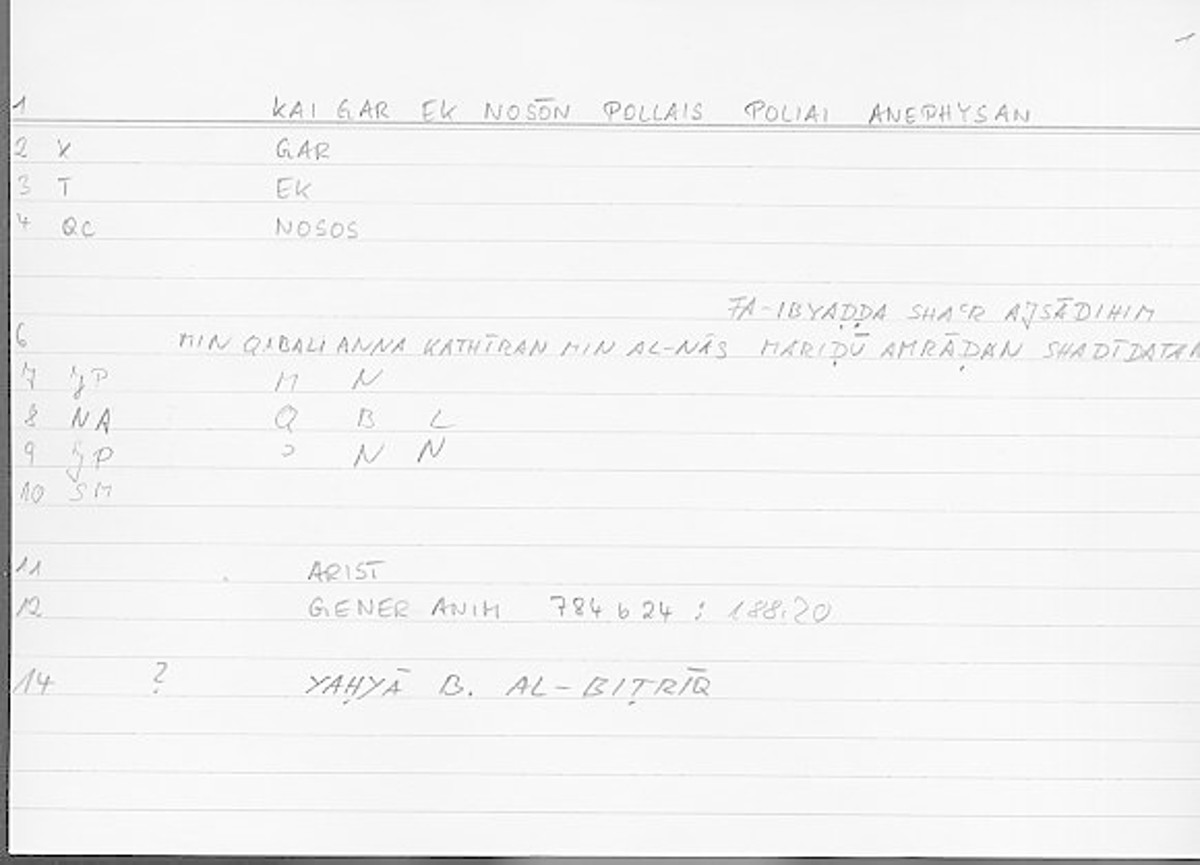 1 KAI GAR EK NOSŌN POLLAIS POLIAI ANEPHYSAN
2 X GAR
3 T EK
4 QC NOSOS
FA-IBYAḌḌA SHAʿR AJSĀDIHIM
6 MIN QABALI ANNA KATHĪRAN MIN AL-NĀS MARIḌŪ AMRĀḌAN SHADĪDATAN
7 JP M N
8 NA Q B L
9 JP ʾ N N
10 SM
11 ARIST
12 GENER ANIM 784 b 24 : 188.20
14 ? YAḤYĀ B. AL-BIṬRĪQ